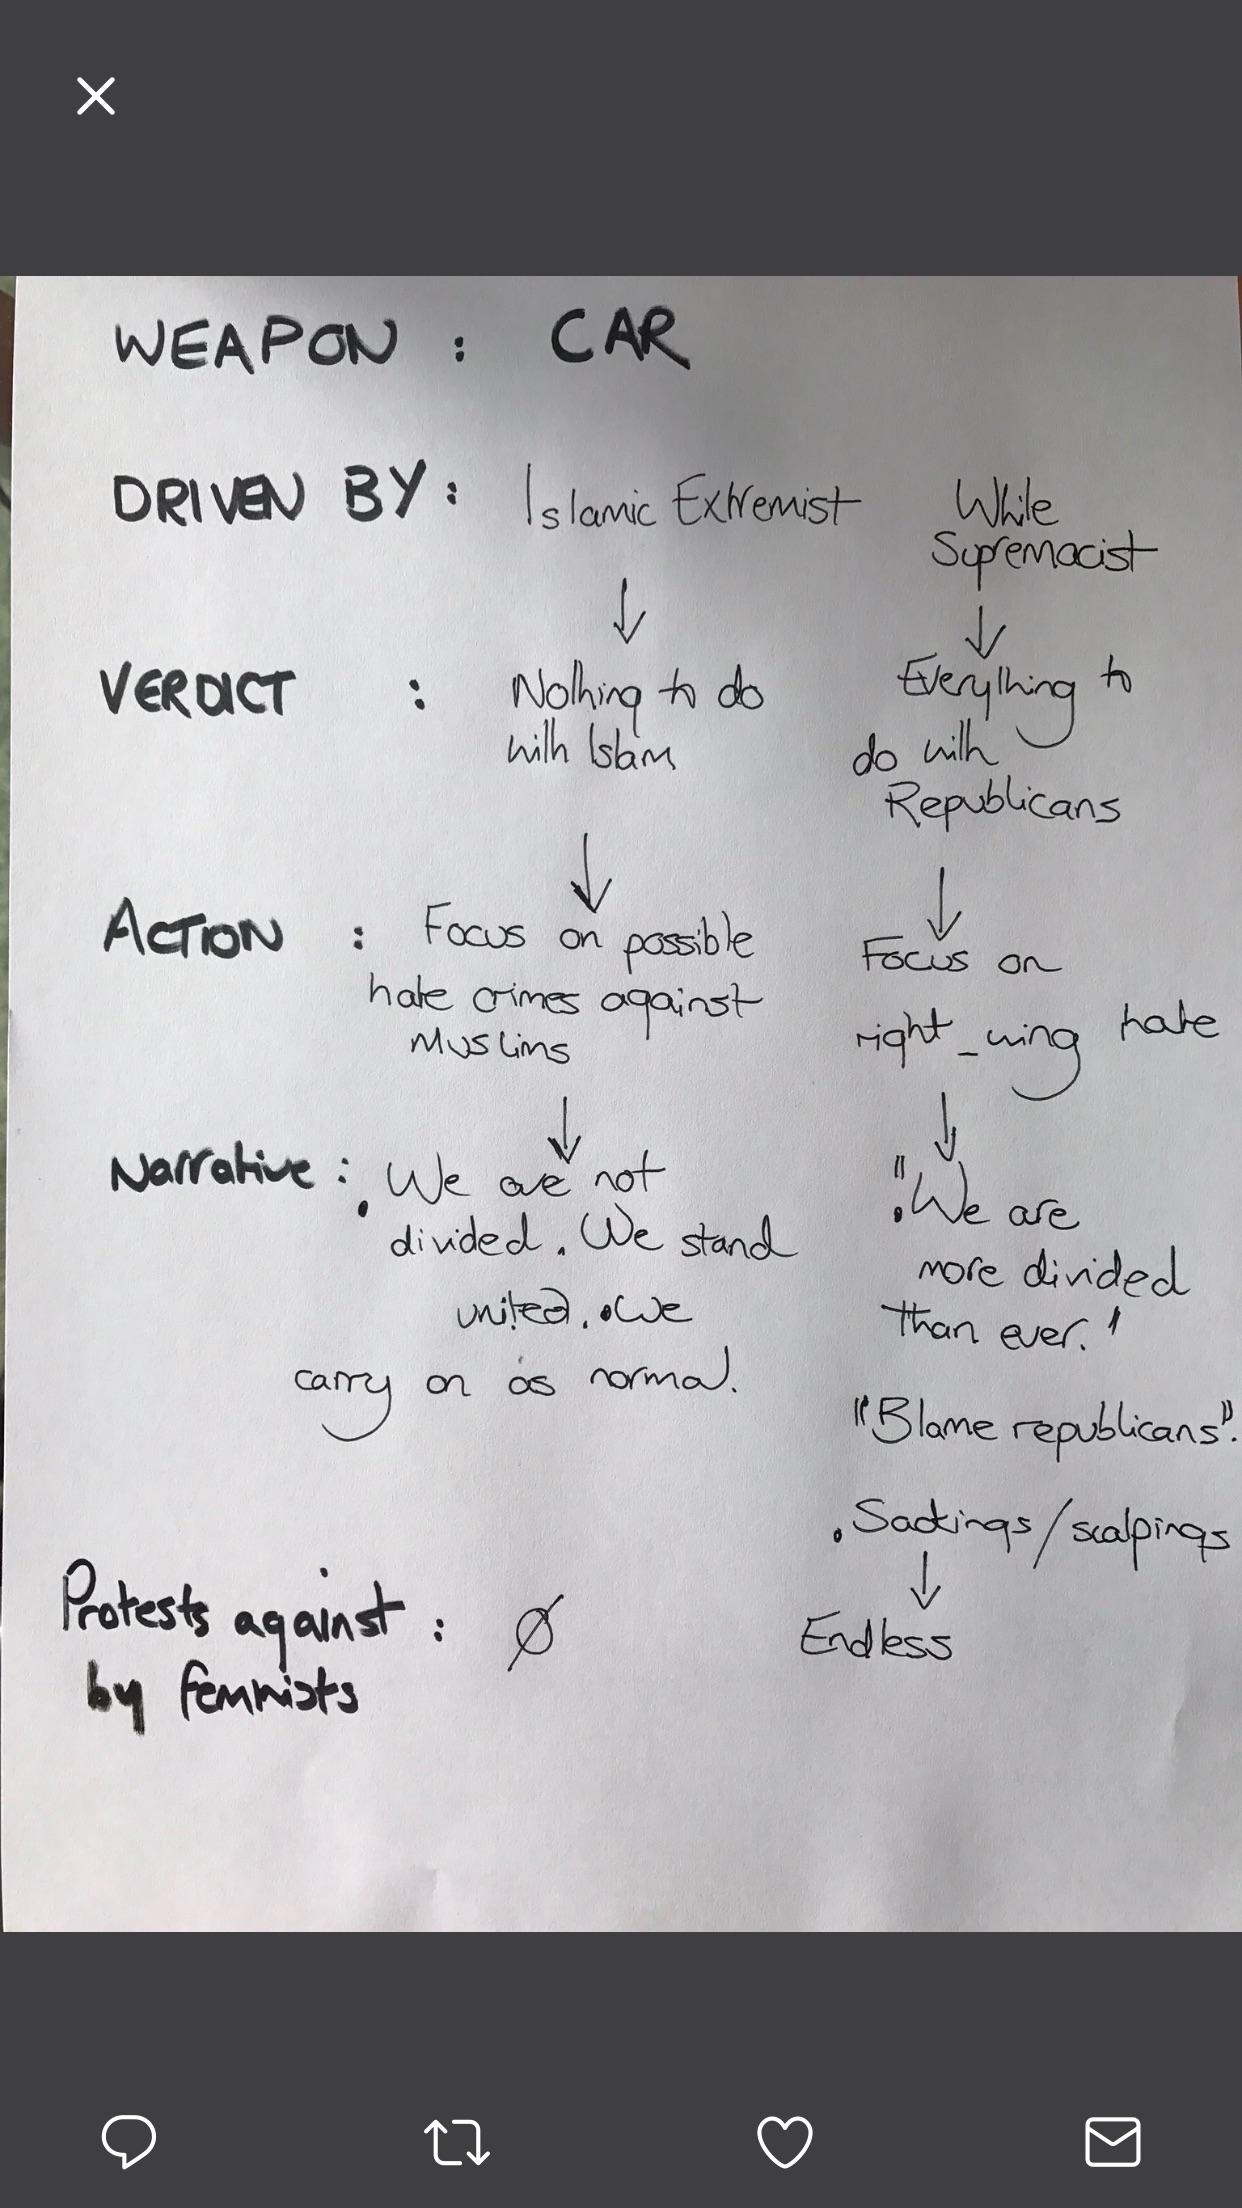 WEAPON : CAR
DRIVEN BY : Islamic Extremist
White
Supremacist
VERDICT : Nothing to do
with Islam
Everything to
do with
Republicans
ACTION : Focus on possible
hate crimes against
Muslims
Focus on
right-wing hate
Narrative : • We are not
divided. We stand
united. • We
carry on as normal.
"• We are
more divided
than ever."
"Blame republicans".
• Sackings/scalpings
Protests against : Ø
by feminists
Endless